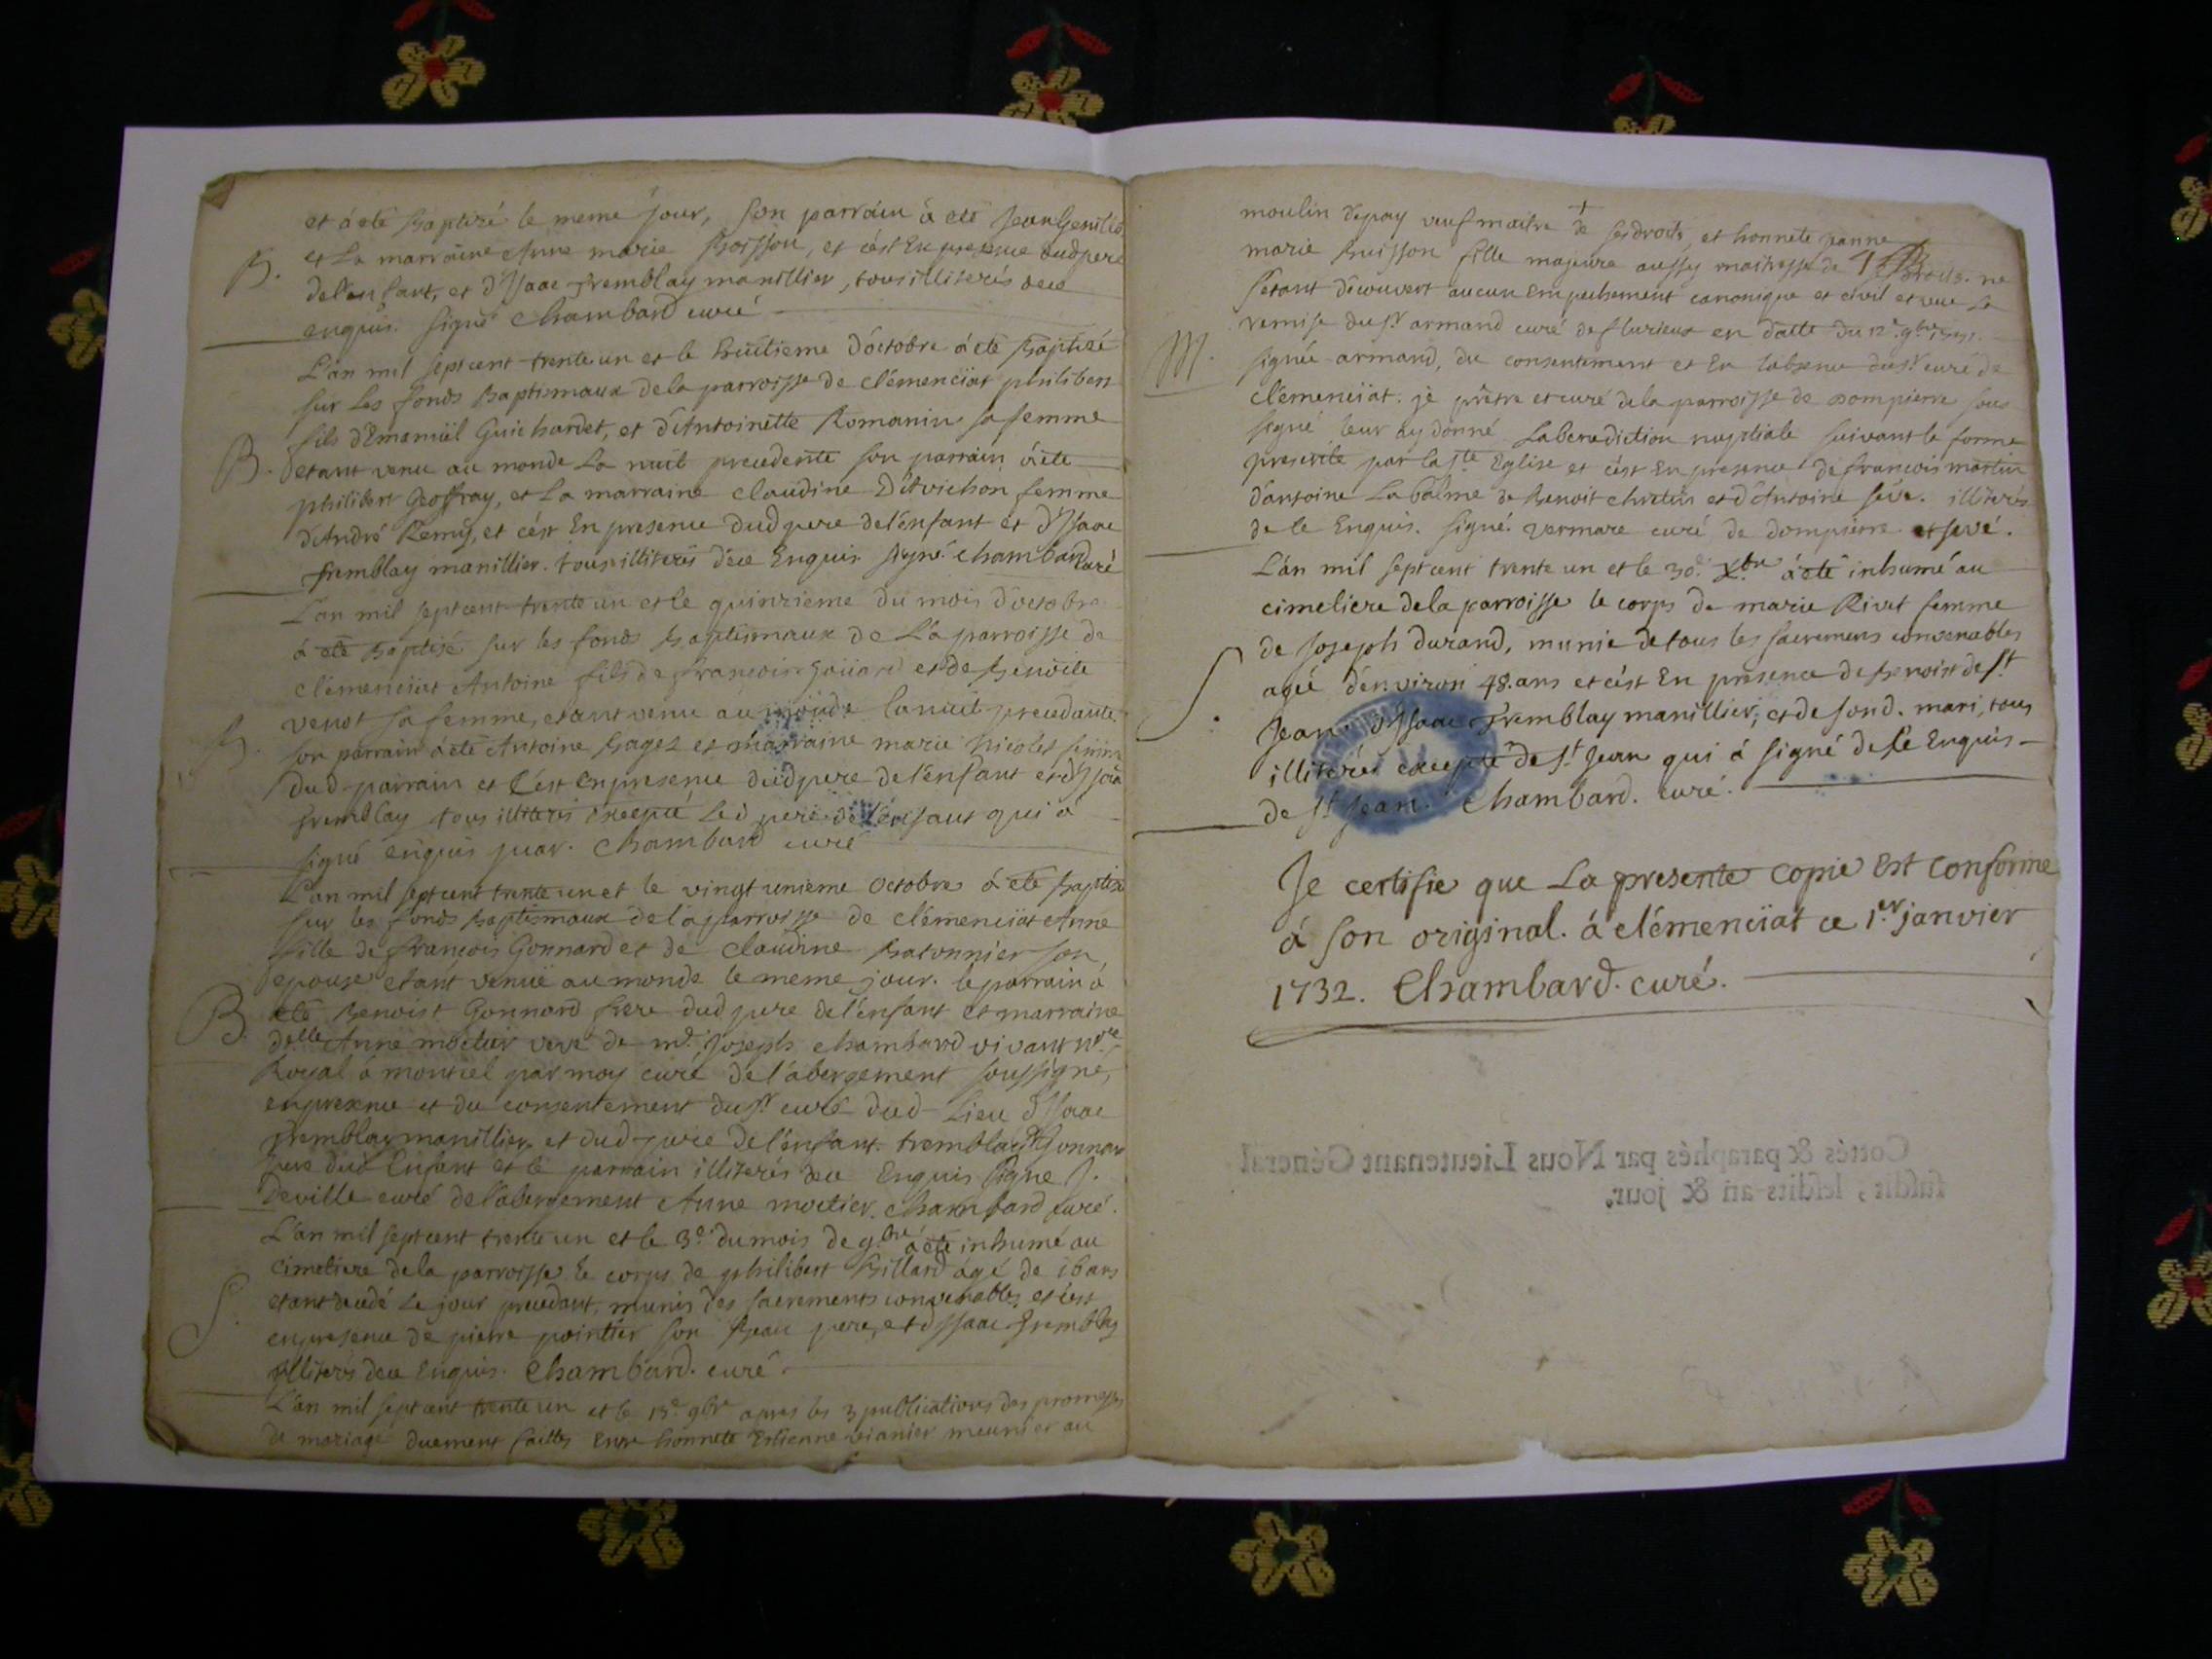 et a eté Baptizé le meme jour, son parrain a eté Jean
et La marraine Anne marie Boisson, et c'est En presence dudpere
B.
de l'enfant, et d'Isaac Tremblay manillier, tous illiterés dece
enquis. signé Chambard curé
L'an mil sept cent trente un et le huitieme d'octobre a eté Baptizé
sur les fonds Baptismaux de la parroisse de clémenciat philibert
fils d'Emanüel Guichardet, et d'Antoinette Romanin sa femme
B.
etant venu au monde La nuit precedente son parrain a eté
philibert Geoffray, et La marraine claudine femme
d'André Remy, et c'est En presence dudpere de l'enfant et d'Isaac
Tremblay manillier. tous illiterés dece Enquis signé Chambard curé
L'an mil sept cent trente un et le quinzieme du mois d'octobre
a eté Baptisé sur les fonds Baptismaux de La parroisse de
clémenciat Antoine fils de françois et de Benoite
venot sa femme, etant venu au monde la nuit precedante
B.
son parrain a eté Antoine et marraine marie Nicolet femme
dud parrain et C'est en presence dudpere de l'enfant et d'Isaac
Tremblay tous illiterés excepté Led pere de l'enfant qui a
signé enquis Chambard curé
L'an mil sept cent trente un et le vingt unieme Octobre a eté Baptisé
sur les fonds Baptismaux de la parroisse de clémenciat Anne
fille de françois Gonnard et de claudine Batonnier son
epouse etant venuë au monde le meme jour. le parrain a
B.
eté Benoist Gonnard frere dud pere de l'enfant et marraine
delle Anne moctier veve de mr. Joseph chambard vivant nre
Royal a montiel par moy curé de l'abergement soussigné,
en presence et du consentement du Sr curé dud Lieu d'Isaac
Tremblay manillier et dud pere de l'enfant. tremblay & Gonnard
pere dud Enfant et le parrain illiterés dece Enquis signé J.
Deville curé de l'abergement Anne moctier. Chambard curé.
L'an mil sept cent trente un et le 3e. du mois de 9bre a eté inhumé au
cimetiere de la parroisse le corps de philibert Billard agé de 16 ans
etant decedé Le jour precedant, munis des sacrements convenables et c'est
S.
en presence de pierre pointier son Beau pere, et d'Isaac Tremblay
illiterés dece Enquis. Chambard. curé.
L'an mil sept cent trente un et le 13e. 9bre apres les 3 publications des promesses
de mariage duement faittes Entre honnete Estienne meunier au
moulin depay veuf maitre de ses droits, et honnete Jeanne
marie Buisson fille majeure aussy maitresse de ses droits. ne
s'etant découvert aucun Empechement canonique et civil et veu La
remise du Sr armand curé de flurieux en datte du 12e. 9bre
M.
signée armand, du consentement et En l'absence du Sr curé de
clémenciat. je prêtre et curé de la parroisse de dompierre sous
signé leur ay donné La benediction nuptiale suivant le forme
prescrite par la ste Eglise et c'est En presence de françois martin
d'antoine La balme de Benoit et d'Antoine seve. illiterés
de le Enquis. signé. vermare curé de dompierre et sevé.
L'an mil sept cent trente un et le 30e. Xbre a eté inhumé au
cimetiere de la parroisse le corps de marie Rivet femme
de Joseph Durand, munie de tous les sacremens convenables
S.
agée d'environ 48. ans et c'est En presence de Benoist de St
Jean d'Isaac Tremblay manillier, et de sond. mari, tous
illiterés excepté de St Jean qui a signé de le Enquis
de St Jean. Chambard. curé.
Je certifie que La presente copie Est conforme
à son original. à clémenciat ce 1er. janvier
1732. Chambard. curé.
Cottés & paraphés par Nous Lieutenant Général
susdit, lesdits an & jour.